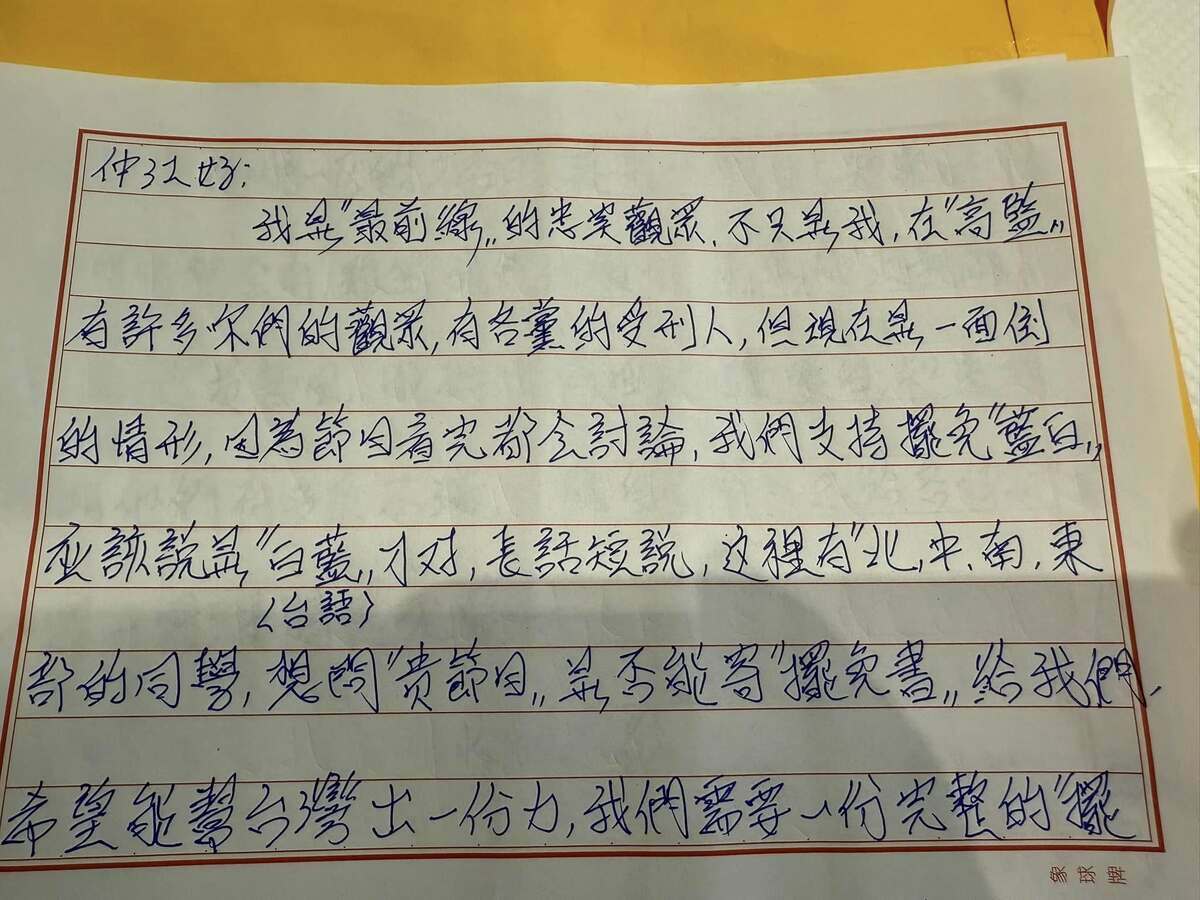 仲江好:
我是"最前線"的忠實觀眾,不只是我,在"高監"
有許多你們的觀眾,有各黨的受刑人,但現在是一面倒
的情形,因為節目看完都会討論,我們支持擺免"藍白"
應該說是"白藍"才对,長話短說,这裡有"北,中,南,東
〈台語〉
部的同學,想問"贵節目"是否能寄"擺免書"給我們,
希望能幫台灣出一份力,我們需要一份完整的"擺
象球牌